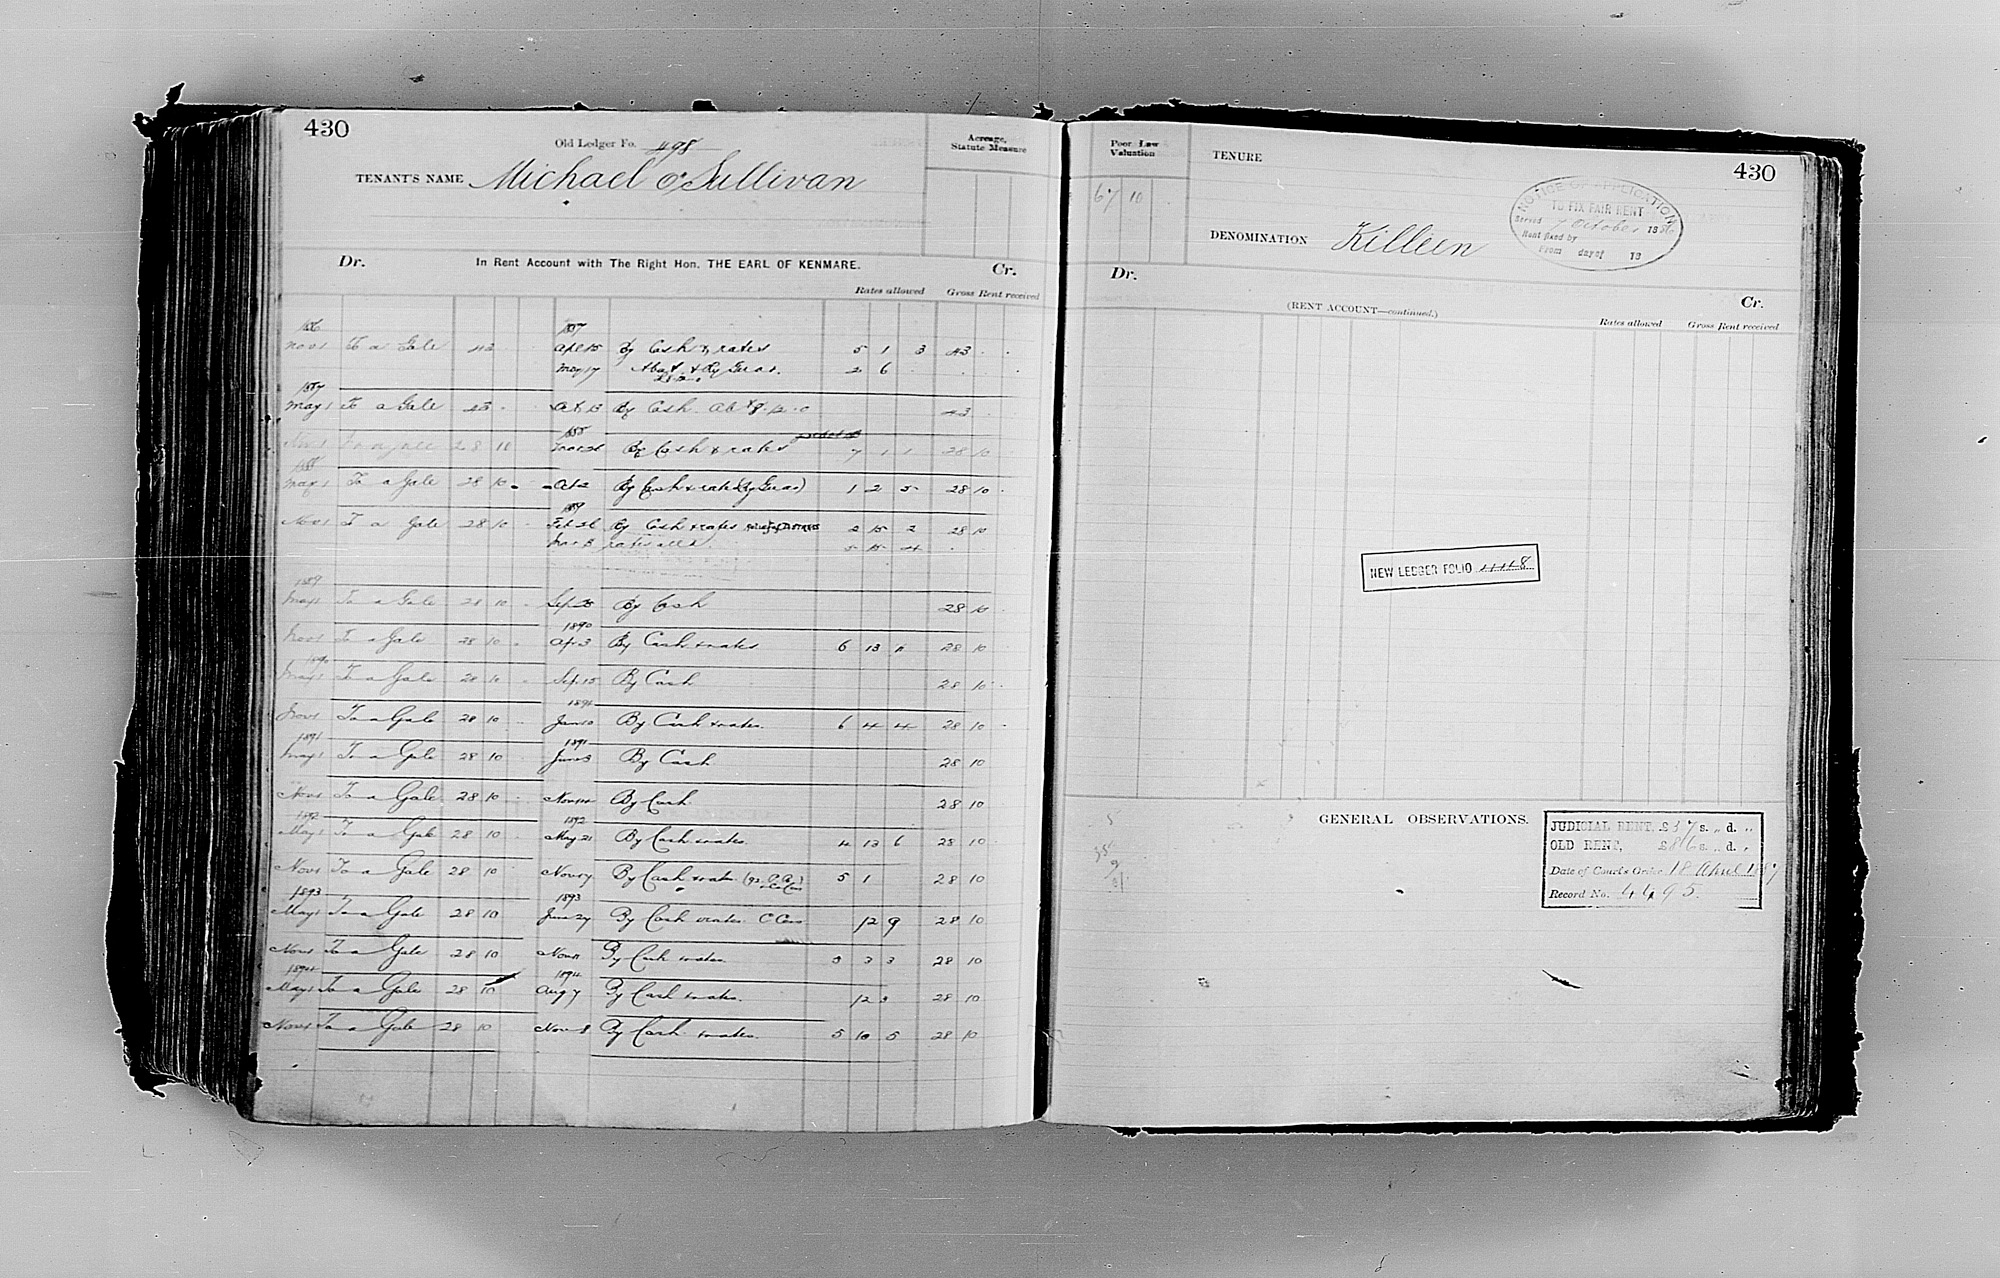 430
Old Ledger Fo. 498
TENANT'S NAME Michael O'Sullivan
Acreage, Statute Measure
Dr. In Rent Account with The Right Hon. THE EARL OF KENMARE. Cr.
Rates allowed Gross Rent received
1886 1887
Nov 1 To a Gale 43 Apl 15 By Cash & rates 5 1 3 43
May 17 2 6
1887
May 1 To a Gale 43 Oct 13 By Cash 43
1888
Nov 1 To a Gale 28 10 By Cash & rates 7 1 1 28 10
1888
May 1 To a Gale 28 10 Oct 2 By Cash & rates 1 2 5 28 10
1889
Nov 1 To a Gale 28 10 Feb 26 By Cash & rates 2 15 2 28 10
rates alld. 5 15 4
1889
May 1 To a Gale 28 10 Sep 25 By Cash 28 10
1890
Nov 1 To a Gale 28 10 Apr 3 By Cash & rates 6 13 11 28 10
1890
May 1 To a Gale 28 10 Sep 15 By Cash 28 10
1891
Nov 1 To a Gale 28 10 Jan 10 By Cash & rates. 6 4 4 28 10
1891 1891
May 1 To a Gale 28 10 June 3 By Cash 28 10
Nov 1 To a Gale 28 10 Nov 14 By Cash 28 10
1892 1892
May 1 To a Gale 28 10 May 21 By Cash & rates 4 13 6 28 10
Nov 1 To a Gale 28 10 Nov 17 By Cash & rates 5 1 28 10
1893 1893
May 1 To a Gale 28 10 June 27 By Cash & rates C Cess 12 9 28 10
Nov 1 To a Gale 28 10 Nov 11 By Cash & rates. 3 3 3 28 10
1894 1894
May 1 To a Gale 28 10 Aug 7 By Cash & rates. 12 3 28 10
Nov 1 To a Gale 28 10 Nov 8 By Cash & rates. 5 10 5 28 10
430
Poor Law Valuation
67 10
TENURE
DENOMINATION Killeen
NOTICE OF APPLICATION
TO FIX FAIR RENT
Served 7 October 1886
Rent fixed by
From day of 18
Dr. Cr.
(RENT ACCOUNT—continued.)
Rates allowed Gross Rent received
NEW LEDGER FOLIO 1118
GENERAL OBSERVATIONS.
JUDICIAL RENT, £57 s. „ d. „
OLD RENT, £86 s. „ d. „
Date of Court's Order 18 April 1887
Record No. 4495.